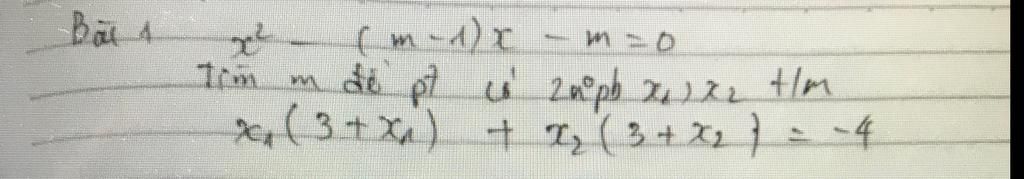 Bài 1 x² - (m-1)x - m = 0
Tìm m để pt có 2n⁰pb x₁, x₂ t/m
x₁(3+x₁) + x₂(3+x₂) = -4